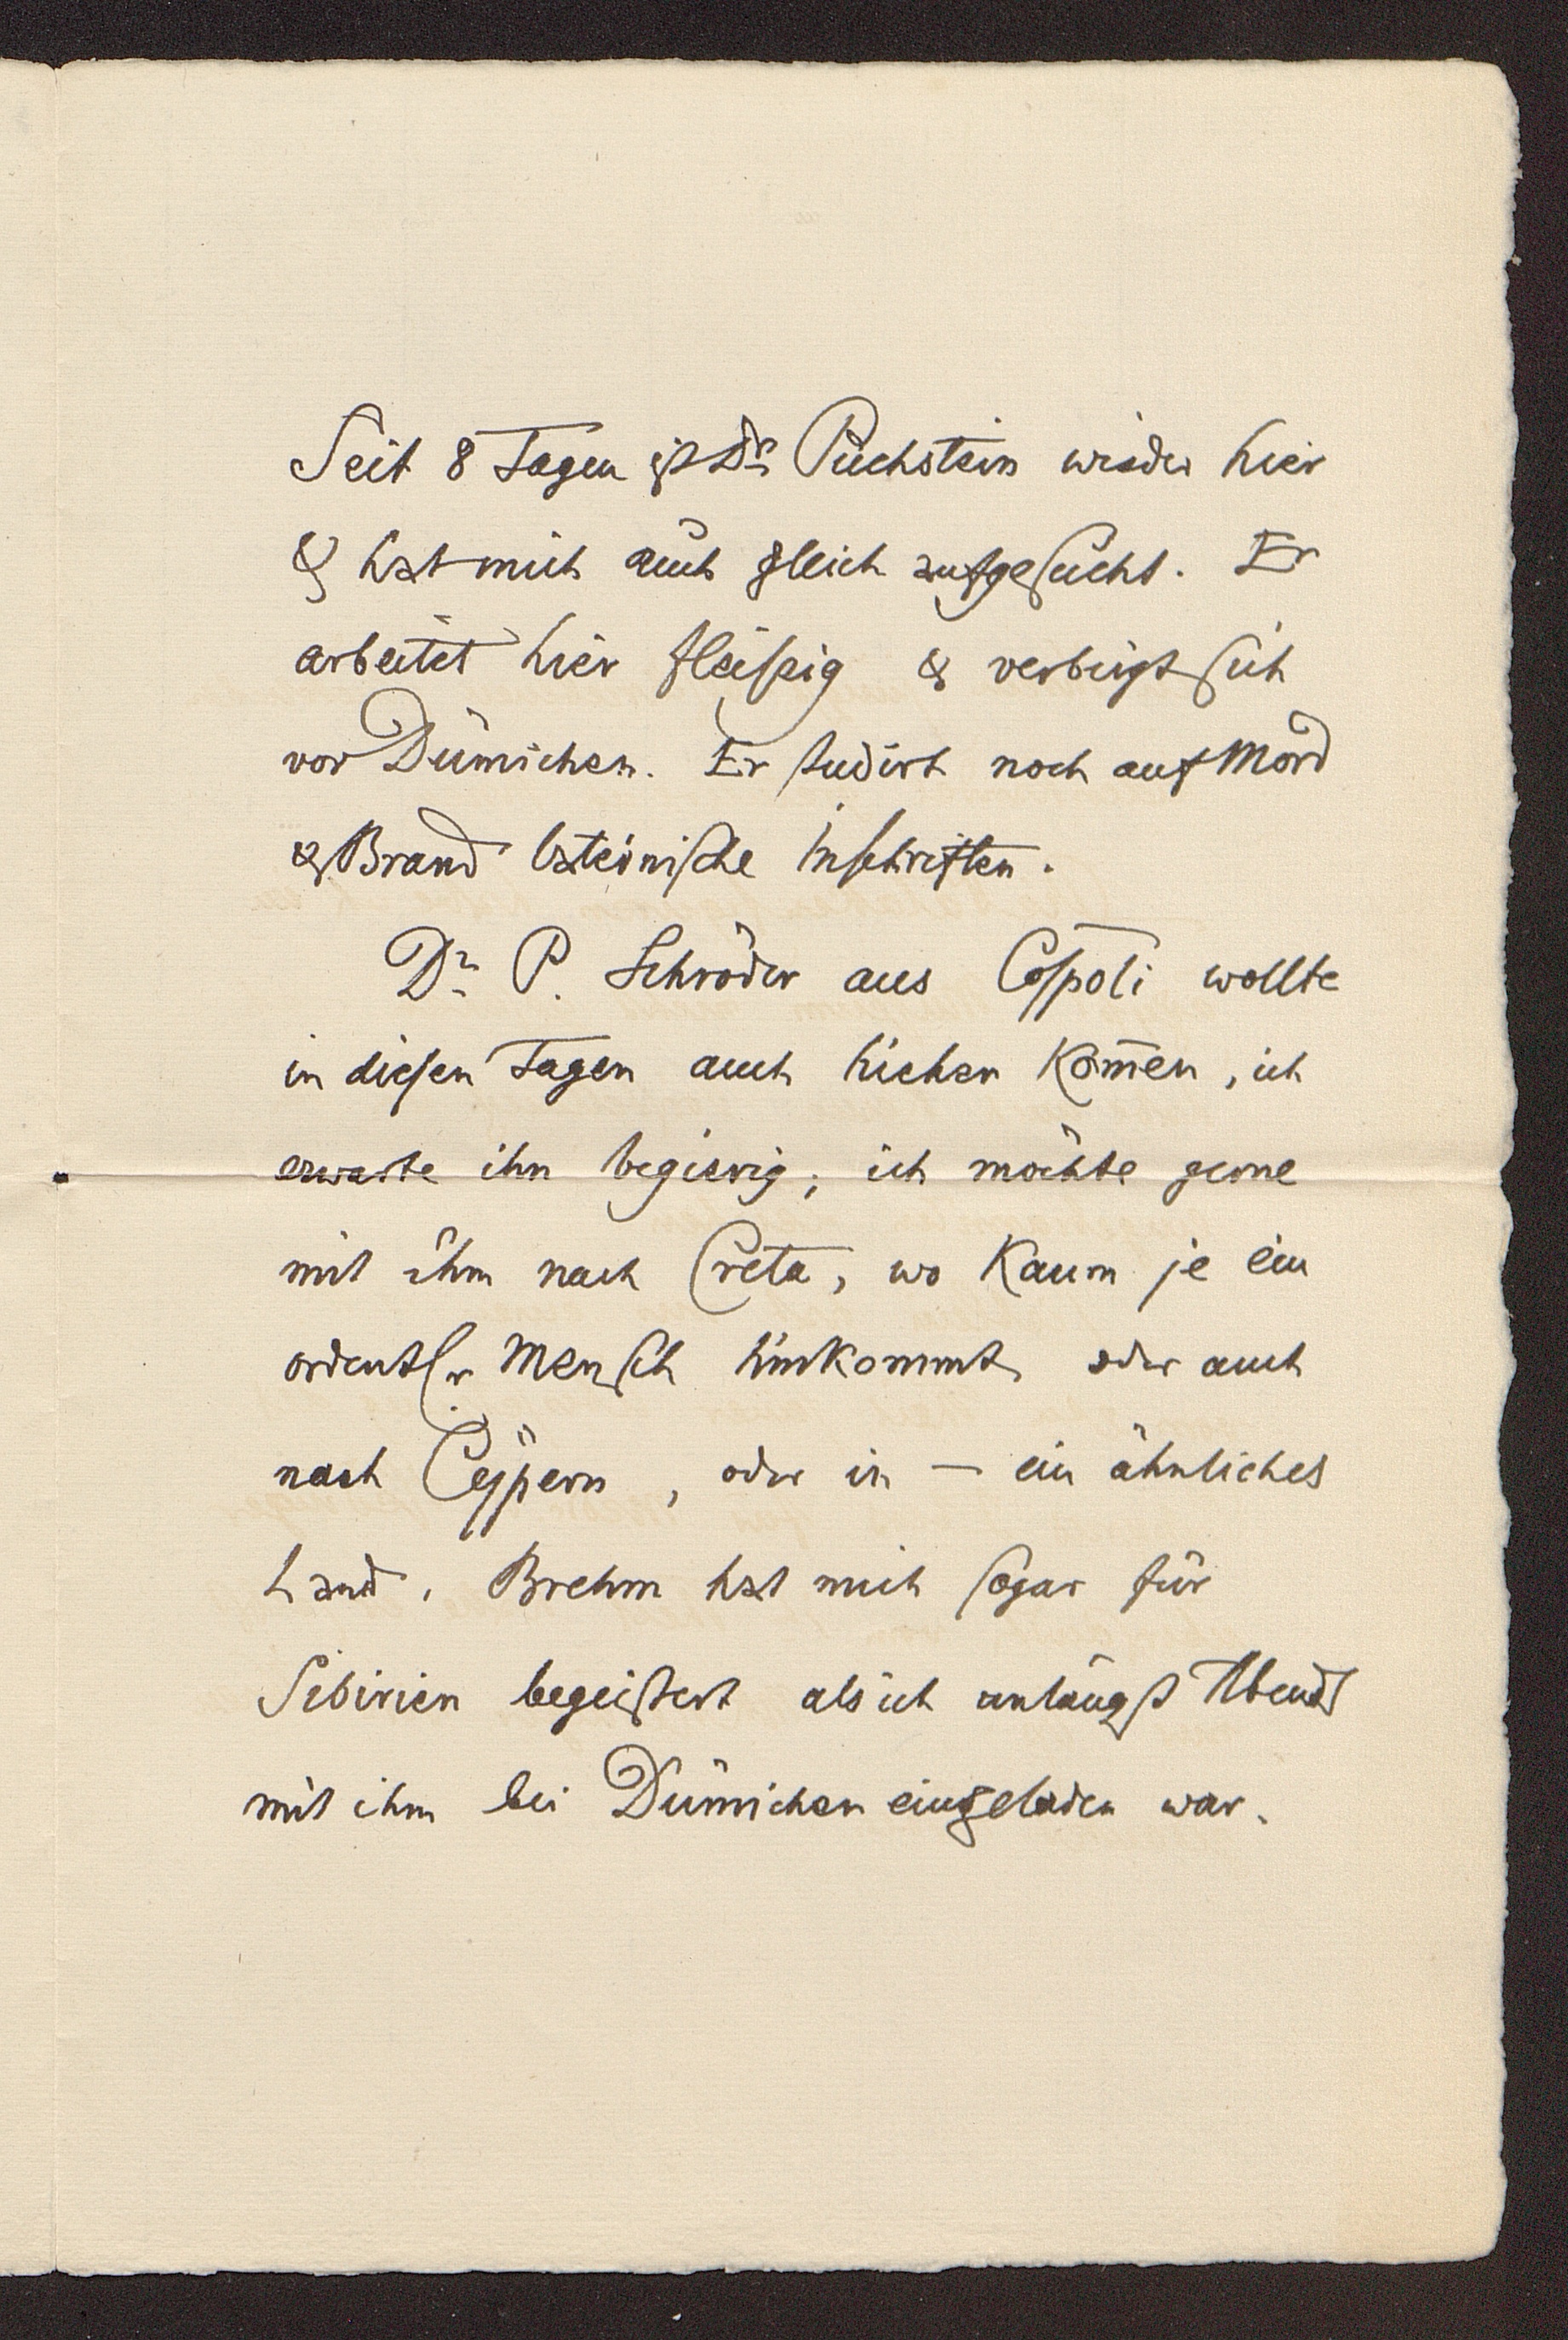 Seit 8 Tagen ist Dr. Puchstein wieder hier
& hat mich auch gleich aufgesucht. Er
arbeitet hier fleißig & verbirgt sich
vor Dümichen. Er studirt noch auf Mord
& Brand lateinische Inschriften.
Dr. P. Schröder aus Cospoli wollte
in diesen Tagen auch hieher kom̄en, ich
erwarte ihn begierig; ich möchte gerne
mit ihm nach Creta, wo kaum je ein
Mensch hinkommt, oder auch
nach Cypern, oder in — ein ähnliches
Land. Brehm hat mich sogar für
Sibirien begeistert als ich unlängst Abends
mit ihm bei Dümichen eingeladen war.